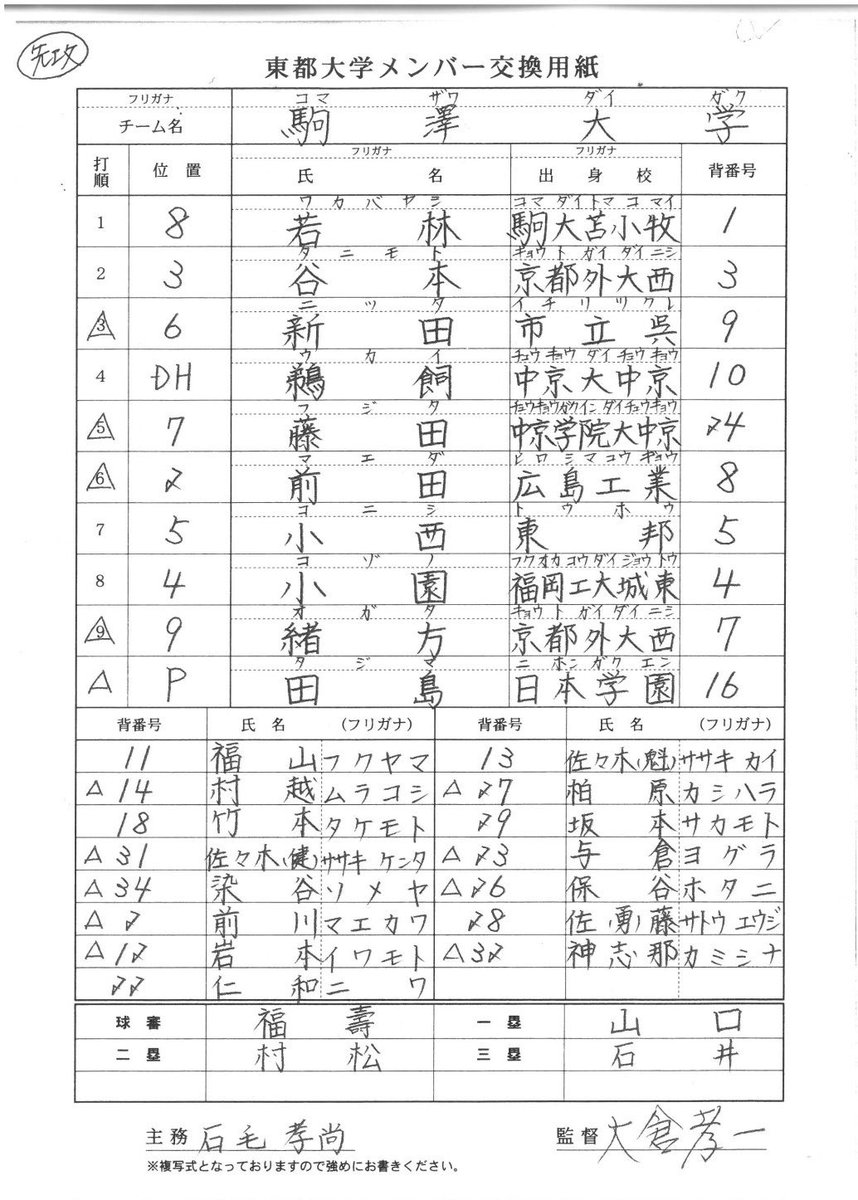 先攻
東都大学メンバー交換用紙
フリガナ コマ ザワ ダイ ガク
チーム名 駒澤大学
打順 位置 フリガナ 氏名 フリガナ 出身校 背番号
ワカバヤシ コマダイトマコマイ
1 8 若林 駒大苫小牧 1
タニモト キョウトガイダイニシ
2 3 谷本 京都外大西 3
ニッタ イチリツクレ
△3 6 新田 市立呉 9
ウカイ チュウキョウダイチュウキョウ
4 DH 鵜飼 中京大中京 10
フジタ チュウキョウガクインダイチュウキョウ
△5 7 藤田 中京学院大中京 24
マエダ ヒロシマコウギョウ
△6 2 前田 広島工業 8
コニシ トウホウ
7 5 小西 東邦 5
コゾノ フクオカコウダイジョウトウ
8 4 小園 福岡工大城東 4
オガタ キョウトガイダイニシ
△9 9 緒方 京都外大西 7
タジマ ニホンガクエン
△ P 田島 日本学園 16
背番号 氏名 (フリガナ) 背番号 氏名 (フリガナ)
11 福山 フクヤマ 13 佐々木(魁) ササキ カイ
△14 村越 ムラコシ △27 柏原 カシハラ
18 竹本 タケモト 29 坂本 サカモト
△31 佐々木(健) ササキ ケンタ △23 与倉 ヨグラ
△34 染谷 ソメヤ △26 保谷 ホタニ
△2 前川 マエカワ 28 佐(勇)藤 サトウ エウジ
△12 岩本 イワモト △32 神志那 カミシナ
22 仁和 ニワ
球審 福壽 一塁 山口
二塁 村松 三塁 石井
主務 石毛孝尚 監督 大倉孝一
※複写式となっておりますので強めにお書きください。